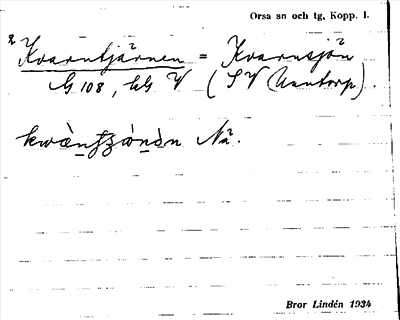 Orsa sn och tg, Kopp. l.
2 Kvarntjärnen = Kvarnsjön
G 108, UG V (SV Unntorp).
Nä.
Bror Lindén 1934